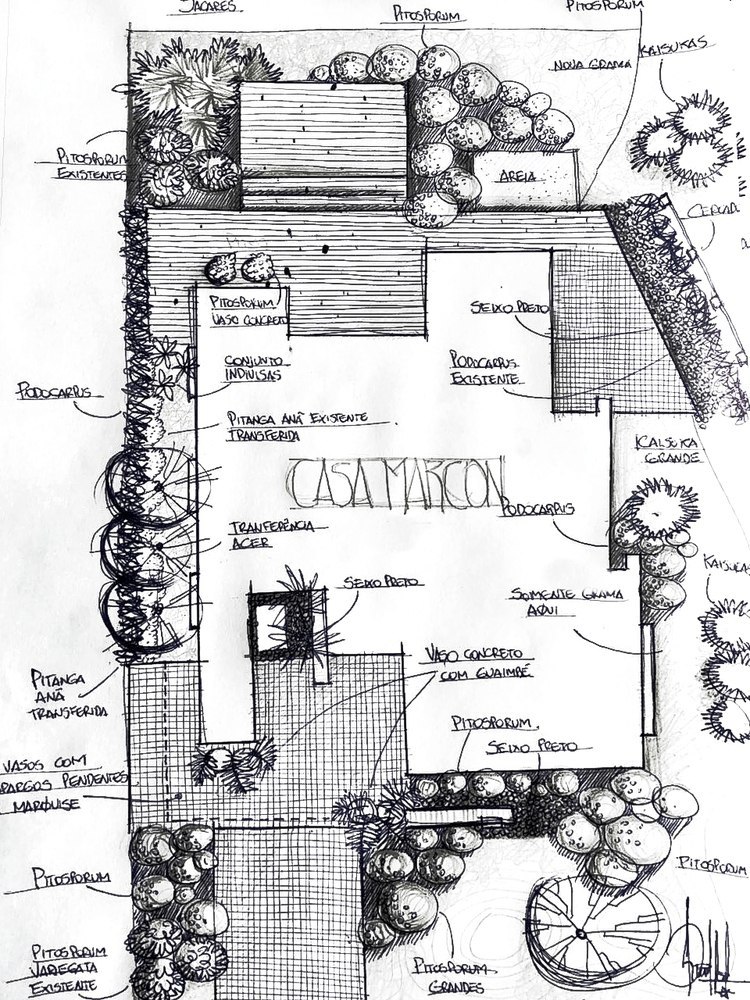 JACARÉS
PITOSPORUM
PITOSPORUM
NOVA GRAMA
KAISUKAS
PITOSPORUM
EXISTENTES
AREIA
PITOSPORUM
VASO CONCRETO
SEIXO PRETO
CONJUNTO
INDIVISAS
PODOCARPUS
EXISTENTE
PODOCARPUS
PITANGA ANÃ EXISTENTE
TRANSFERIDA
KAISUKA
GRANDE
CASA MARCON
PODOCARPUS
TRANFERÊNCIA
ACER
SEIXO PRETO
SOMENTE GRAMA
AQUI
VASO CONCRETO
COM GUAIMBÉ
PITANGA
ANÃ
TRANSFERIDA
PITOSPORUM
SEIXO PRETO
VASOS COM
PENDENTES
MARQUISE
PITOSPORUM
PITOSPORUM
PITOSPORUM
VARIEGATA
EXISTENTE
PITOSPORUM
GRANDES